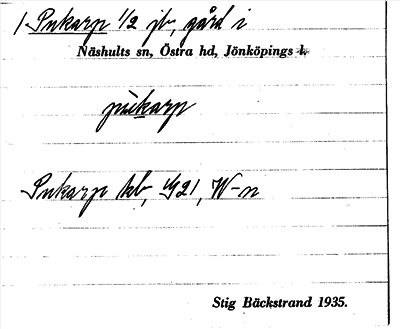 1 Pukarp 1/2 jb, gård i
Näshults sn, Östra hd, Jönköpings l.
pukarp
Pukarp kb, W-n
Stig Bäckstrand 1935.